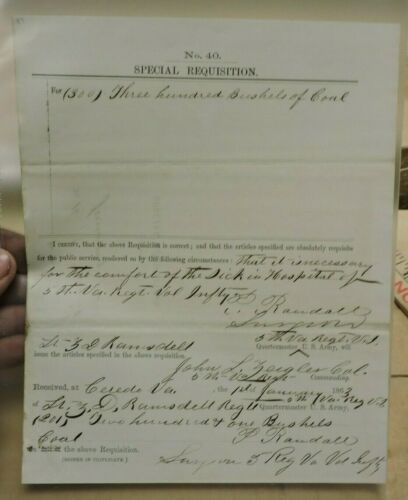 No. 40.
SPECIAL REQUISITION.
For (300) Three hundred Bushels of Coal
I CERTIFY, that the above Requisition is correct; and that the articles specified are absolutely requisite
for the public service, rendered so by the following circumstances: that it is necessary
for the comfort of the Sick in Hospital of
5th. Va. Regt. Vol Infty
P. Randall
Surgeon
5th Va Regt. Vol.
Lt. Z D Ramsdell Quartermaster U. S. Army, will
issue the articles specified in the above requisition.
John L. Zeigler Col.
5th Commanding.
Received, at Ceredo Va. the 1st January 1863
of Lt. Z. D. Ramsdell Regtl 5th Va Reg Vol
Quartermaster U. S. Army,
(201) Two hundred & one Bushels
Coal P. Randall
in full of the above Requisition.
Surgeon 5 Reg Va Vol Infty
(SIGNED IN DUPLICATE.)